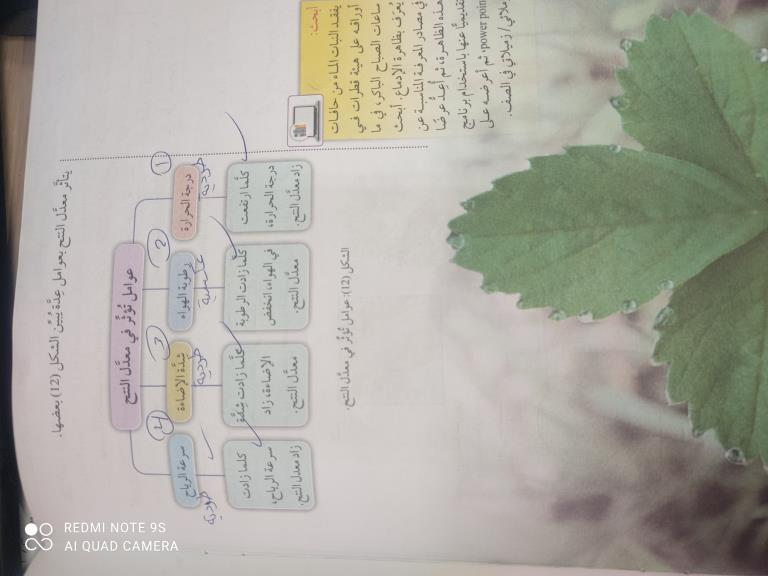 يتأثر معدّل النتح بعوامل عِدّة يُبيّن الشكل (12) بعضها.
عوامل تُؤثّر في معدّل النتح
1
درجة الحرارة
طردية
كلّما ارتفعت
درجة الحرارة،
زاد معدّل النتح.
2
رطوبة الهواء
عكسية
كلّما زادت الرطوبة
في الهواء، انخفض
معدّل النتح.
3
شِدّة الإضاءة
طردية
كلّما زادت شِدّة
الإضاءة، زاد
معدّل النتح.
4
سرعة الرياح
طردية
كلما زادت
سرعة الرياح،
زاد معدل النتح.
الشكل (12): عوامل تُؤثّر في معدّل النتح.
أبحث:
يفقد النبات الماء من حافات
أوراقه على هيئة قطرات في
ساعات الصباح الباكر، في ما
يُعرَف بظاهرة الإدماع. أبحث
في مصادر المعرفة المناسبة عن
هذه الظاهرة، ثم أُعِدُّ عرضًا
تقديميًّا عنها باستخدام برنامج
power point، ثم أعرضه على
زملائي/ زميلاتي في الصف.
REDMI NOTE 9S
AI QUAD CAMERA